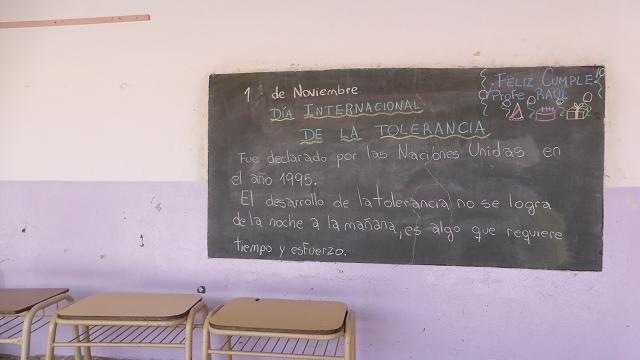 1 de Noviembre
DÍA INTERNACIONAL
DE LA TOLERANCIA
Fue declarado por las Naciones Unidas en
el año 1995.
El desarrollo de la tolerancia, no se logra
de la noche a la mañana, es algo que requiere
tiempo y esfuerzo.
FELIZ CUMPLE
Profe RAÚL